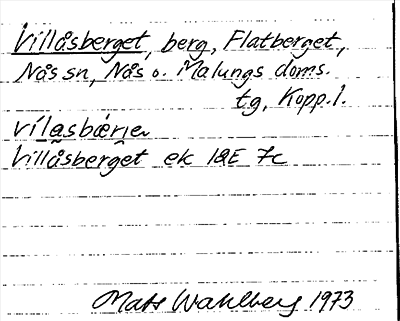 Villåsberget, berg, Flatberget,
Nås sn, Nås o. Malungs doms.
tg, Kopp. l.
Villåsberget ek 12E 7c
Mats Wahlberg 1973